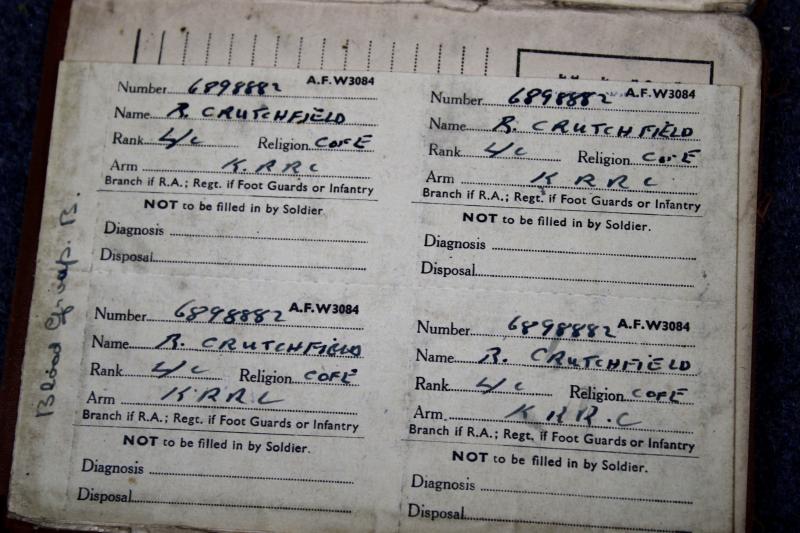 A.F.W3084
Number 6898882
Name R. CRUTCHFIELD
Rank L/C Religion C OF E
Arm K.R.R.C
Branch if R.A.; Regt. if Foot Guards or Infantry
NOT to be filled in by Soldier.
Diagnosis
Disposal
A.F.W3084
Number 6898882
Name R. CRUTCHFIELD
Rank L/C Religion C of E
Arm K R R C
Branch if R.A.; Regt. if Foot Guards or Infantry
NOT to be filled in by Soldier.
Diagnosis
Disposal
Blood Group. B.
A.F.W3084
Number 6898882
Name R. CRUTCHFIELD
Rank L/C Religion C OF E
Arm K.R.R.C
Branch if R.A.; Regt. if Foot Guards or Infantry
NOT to be filled in by Soldier.
Diagnosis
Disposal
A.F.W3084
Number 6898882
Name R. CRUTCHFIELD
Rank L/C Religion C OF E
Arm K R R . C
Branch if R.A.; Regt. if Foot Guards or Infantry
NOT to be filled in by Soldier.
Diagnosis
Disposal